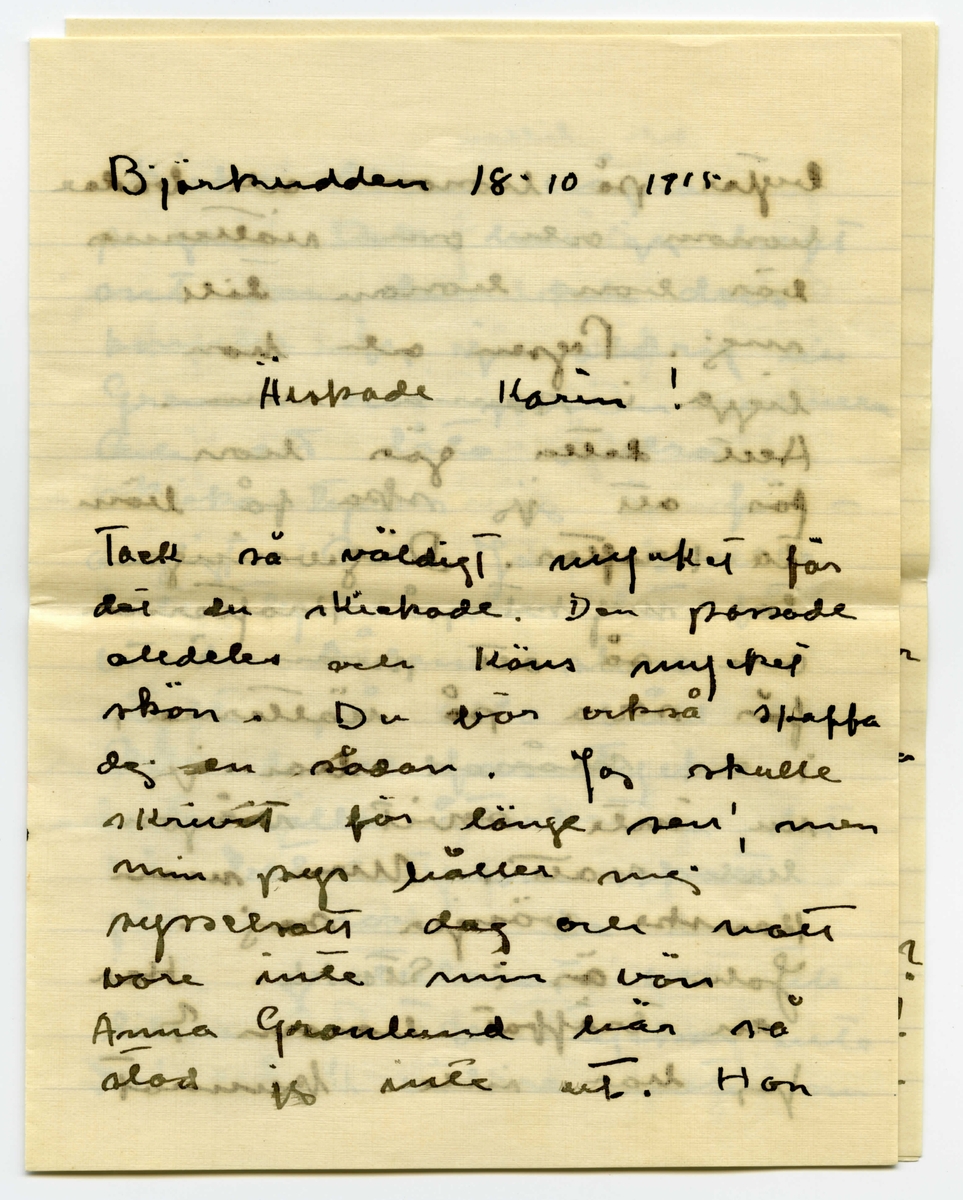 Björkudden 18-10 1915
Älskade Karin!
Tack så väldigt mycket för
det du skickade. Den passade
alldeles och käns mycket
skön. Du bör också skaffa
dej en sådan. Jag skulle
skrivit för länge sen, men
min pys håller mej
sysselsatt dag och natt
vore inte min vän
Anna Gronlund här så
stod jg inte ut. Hon